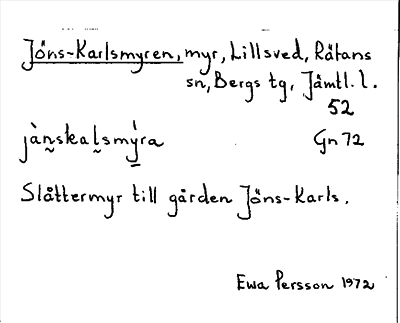 Jöns-Karlsmyren, myr, Lillsved, Rätans
sn, Bergs tg, Jämtl. l.
52
jà̰nskalsmýra Gn 72
Slåttermyr till gården Jöns-Karls.
Ewa Persson 1972